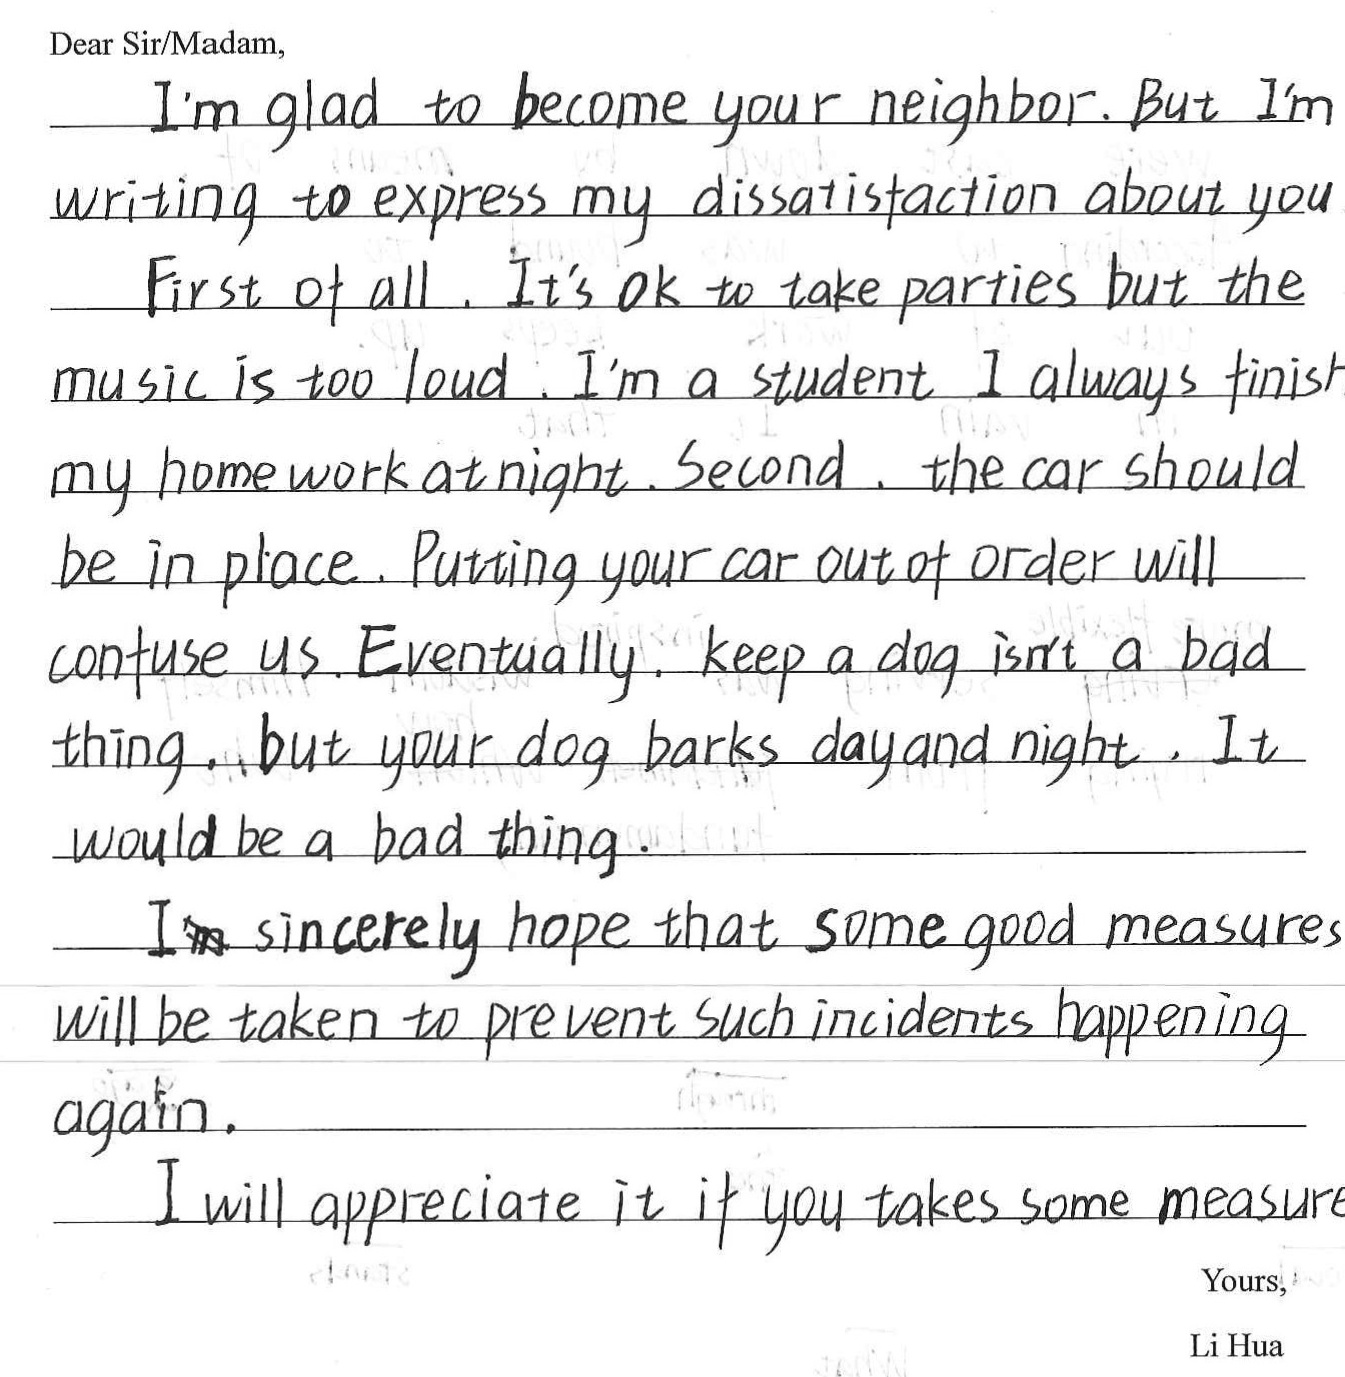 Dear Sir/Madam,
I'm glad to become your neighbor. But I'm
writing to express my dissatisfaction about you
First of all. It's ok to take parties but the
music is too loud. I'm a student I always finish
my homework at night. Second. the car should
be in place. Putting your car out of order will
confuse us. Eventually. keep a dog isn't a bad
thing. but your dog barks day and night. It
would be a bad thing.
I sincerely hope that some good measures
will be taken to prevent such incidents happening
again.
I will appreciate it if you takes some measure
Yours,
Li Hua